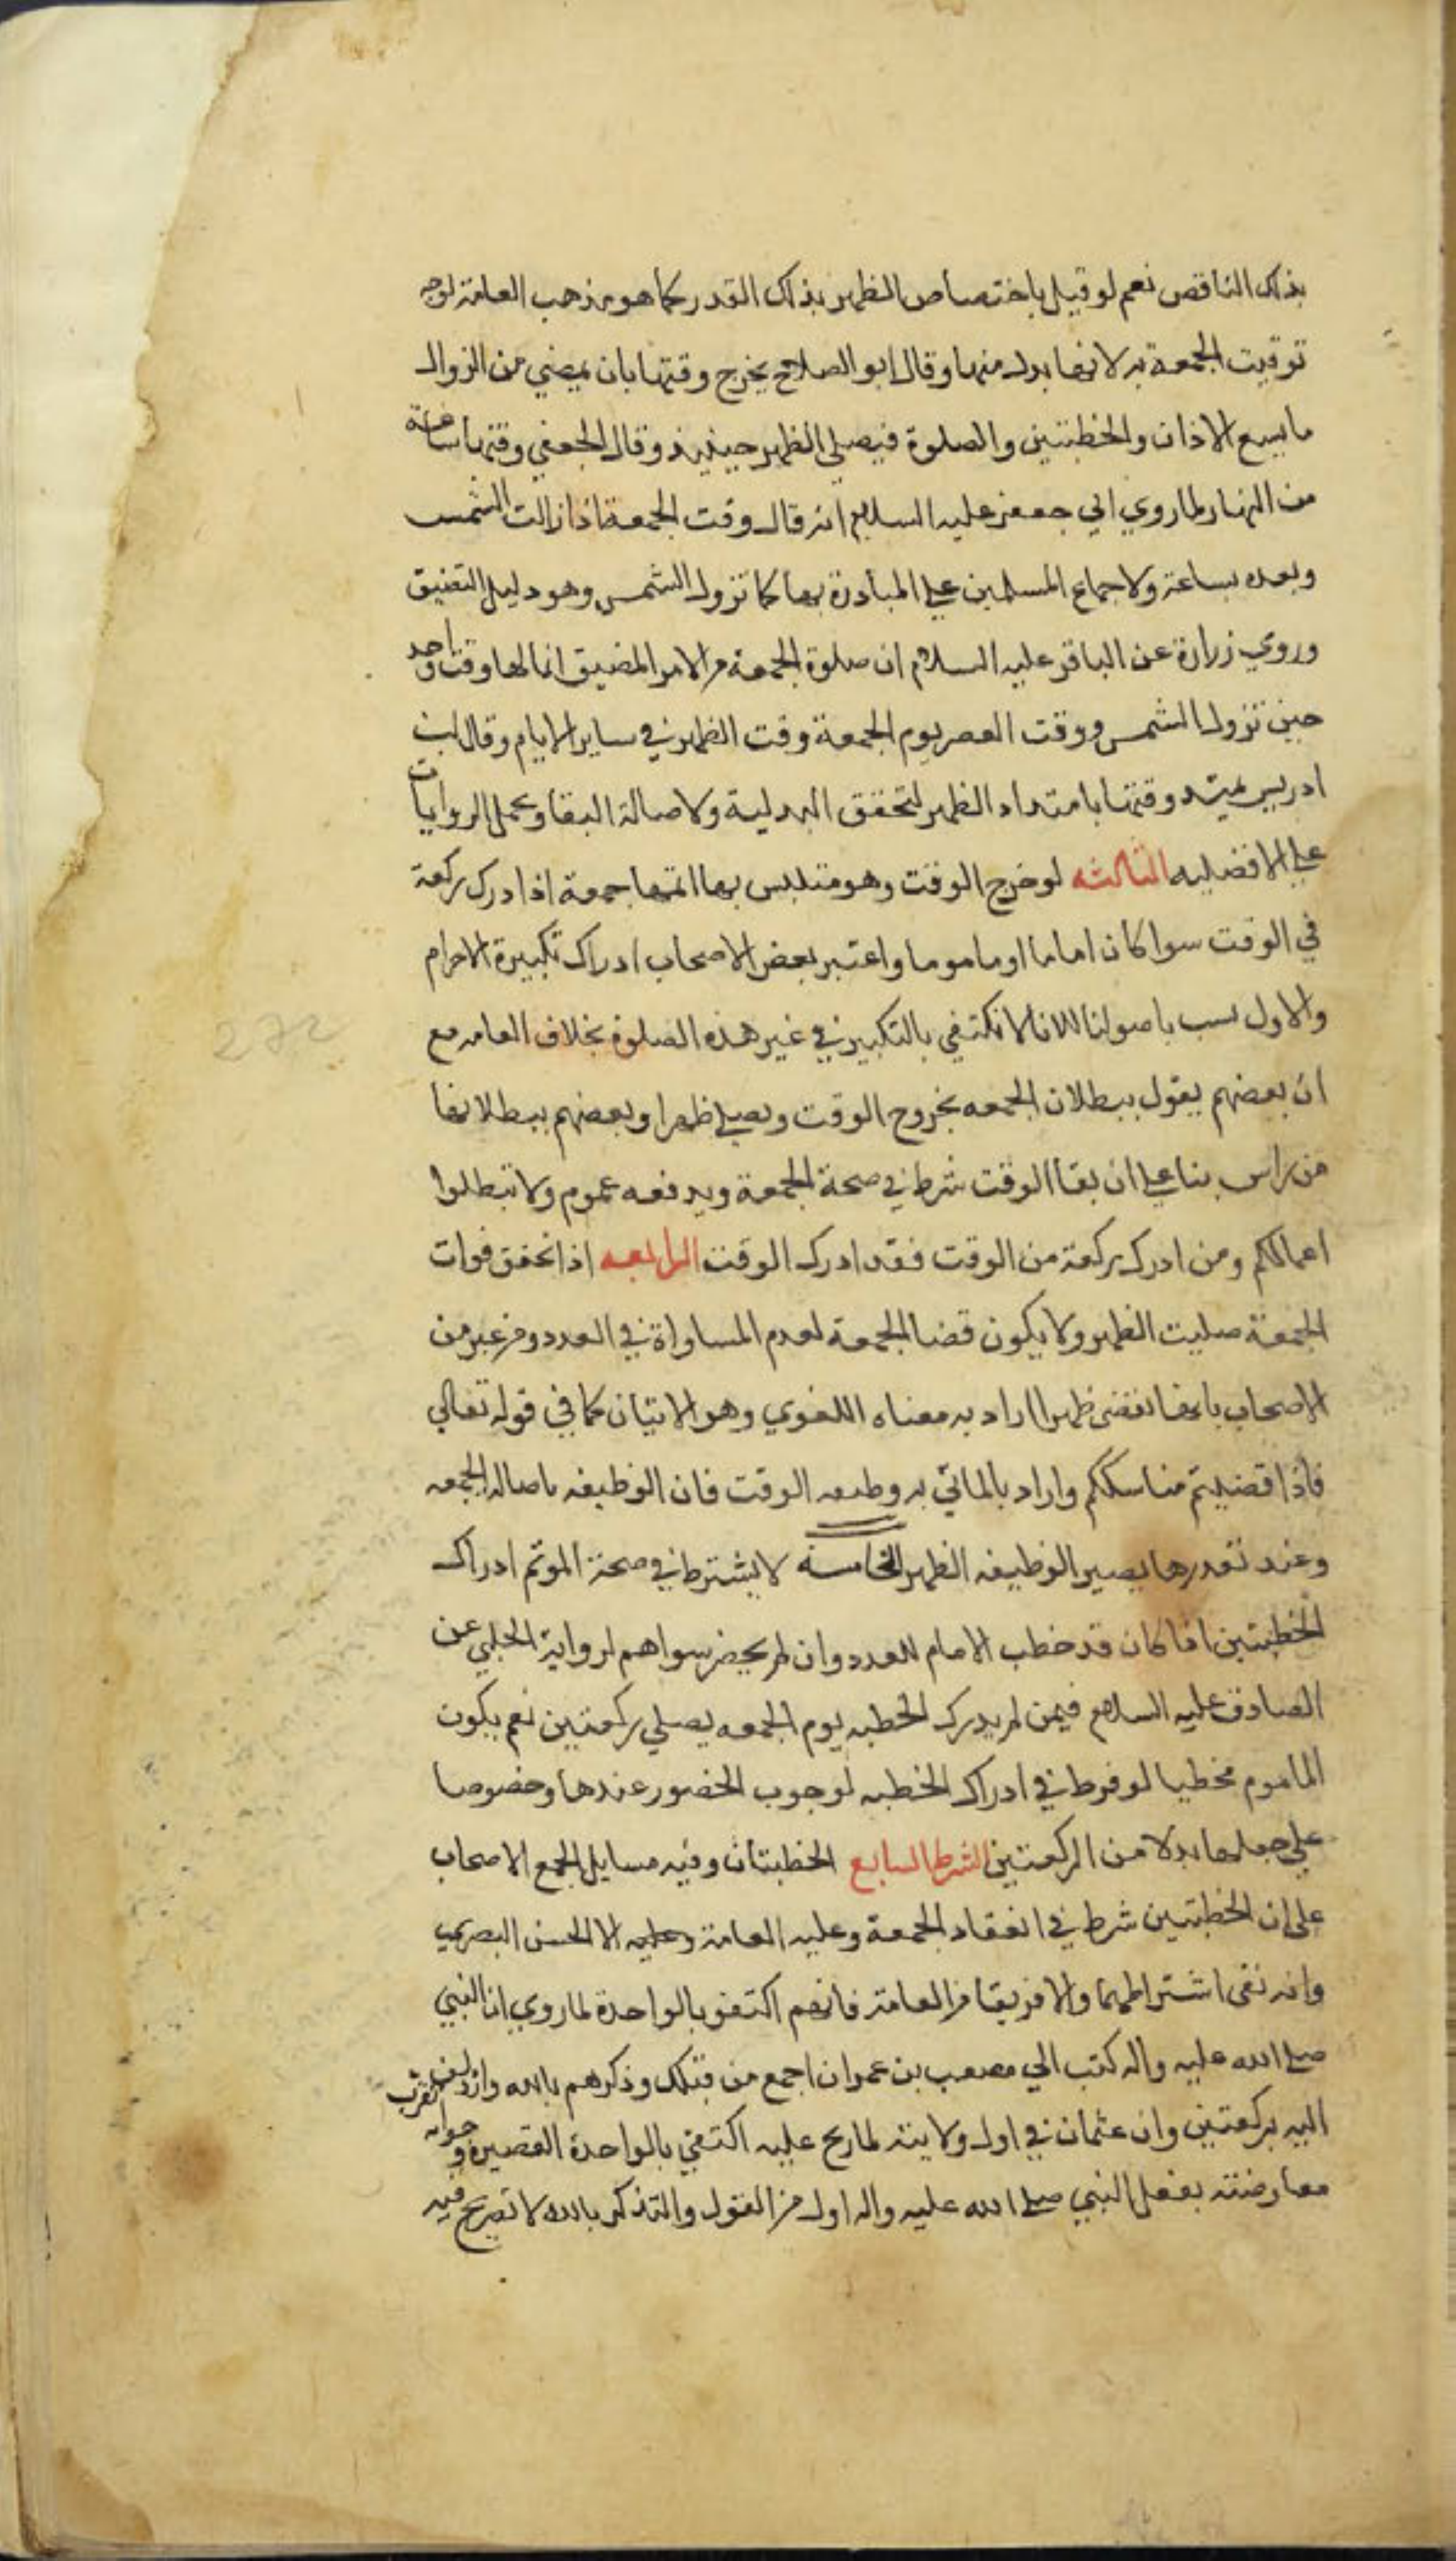 بذلك الناقص نعم لو قيل باختصاص الظهر بذلك القدر كما هو مذهب العامة لوجه
توقيت الجمعة به لانها بدل منها وقال ابو الصلاح يخرج وقتها بان يمضي من الزوال
ما يسع الاذان والخطبتين والصلوة فيصلي الظهر حينئذ وقال الجعفي وقتها ساعة
من النهار لما روي ابي جعفر عليه السلام انه قال وقت الجمعة اذا زالت الشمس
وبعده بساعة ولاجماع المسلمين علي المبادرة بها كما تزول الشمس وهو دليل التضيق
وروي زرارة عن الباقر عليه السلام ان صلوة الجمعة من الامر المضيق انما لها وقت واحد
حين تزول الشمس ووقت العصر يوم الجمعة وقت الظهر في ساير الايام وقال ابن
ادريس يمتد وقتها بامتداد الظهر لتحقق البدلية ولاصالة البقا وبحمل الروايات
علي الافضليه الثالثه لو خرج الوقت وهو متلبس بها اتمها جمعة اذا ادرك ركعة
في الوقت سوا كان اماما او ماموما واعتبر بعض الاصحاب ادراك تكبيرة الاحرام
والاول نسب باصولنا للانا لا نكتفي بالتكبير في غير هذه الصلوة بخلاف العامه مع
ان بعضهم يقول ببطلان الجمعه بخروج الوقت ويصلي ظهرا وبعضهم ببطلانها
من راس بنا علي ان بقا الوقت شرط في صحة الجمعة ويدفعه عموم ولا تبطلوا
اعمالكم ومن ادرك ركعة من الوقت فقد ادرك الوقت الرابعه اذا تحقق فوات
الجمعة صليت الظهر ولا يكون قضا للجمعة لعدم المساواة في العدد ومن عبر من
الاصحاب بانها تقضى ظهرا اراد به معناه اللغوي وهو الاتيان كما في قوله تعالي
فاذا قضيتم مناسككم واراد بالماتي به وظيفه الوقت فان الوظيفه باصاله الجمعه
وعند تعذرها يصير الوظيفه الظهر الخامسة لا يشترط في صحة الموتم ادراك
الخطبتين اذا كان قد خطب الامام للعدد وان لم يحضر سواهم لرواية الحلبي عن
الصادق عليه السلام فيمن لم يدرك الخطبه يوم الجمعه يصلي ركعتين نعم يكون
الماموم مخطيا لو فرط في ادراك الخطبه لوجوب الحضور عندها وخصوصا
علي جعلها بدلا من الركعتين الشرط السابع الخطبتان وفيه مسايل اجمع الاصحاب
على ان الخطبتين شرط في انعقاد الجمعة وعليه العامة وعليه الا الحسن البصري
وانه نفى اشتراطهما والا فريقا من العامة فانهم اكتفو بالواحدة لما روي ان النبي
صلي الله عليه واله كتب الي مصعب بن عمران اجمع من قبلك وذكرهم بالله وازدلف تقرب
اليه بركعتين وان عثمان في اول ولايته لما رتج عليه اكتفي بالواحدة القصيرة وجوابه
معارضته بفعل النبي صلي الله عليه واله اولى من القول والتذكر بالله لا تصريح فيه
272